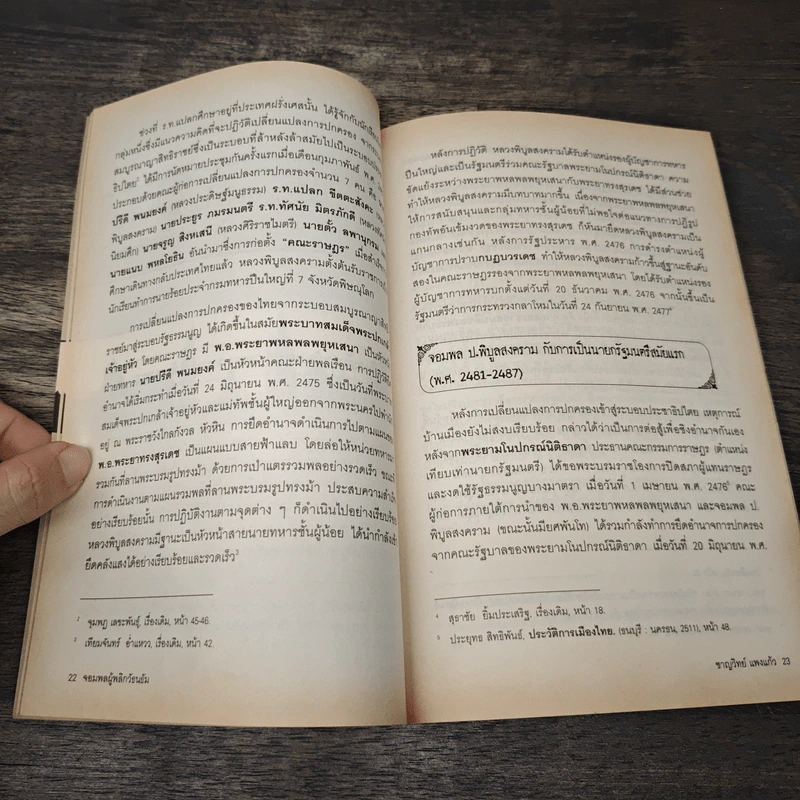 ช่วงที่ ร.ท.แปลกศึกษาอยู่ที่ประเทศฝรั่งเศสนั้น ได้รู้จักกับนักเรียน
กลุ่มหนึ่งซึ่งมีแนวความคิดที่จะปฏิวัติเปลี่ยนแปลงการปกครอง
สมบูรณาญาสิทธิราชย์ซึ่งเป็นระบอบที่ล้าหลังล้าสมัยไปเป็นระบอบ
ธิปไตย² ได้มีการนัดหมายประชุมกันครั้งแรกเมื่อเดือนกุมภาพันธ์ พ.ศ.
ประกอบด้วยคณะผู้ก่อการเปลี่ยนแปลงการปกครองจำนวน 7 คน คือ
ปรีดี พนมยงค์ (หลวงประดิษฐ์มนูธรรม) ร.ท.แปลก ขีตตะสังคะ
พิบูลสงคราม) นายประยูร ภมรมนตรี ร.ท.ทัศนัย มิตรภักดี (หลวง
นิยมศึก) นายจรูญ สิงหเสนี (หลวงศิริราชไมตรี) นายตั้ว ลพานุกรม
นายแนบ พหลโยธิน อันนำมาซึ่งการก่อตั้ง "คณะราษฎร" เมื่อสำเร็จ
ศึกษาเดินทางกลับประเทศไทยแล้ว หลวงพิบูลสงครามตั้งต้นรับราชการ
นักเรียนทำการนายร้อยประจำกรมทหารปืนใหญ่ที่ 7 จังหวัดพิษณุโลก
การเปลี่ยนแปลงการปกครองของไทยจากระบอบสมบูรณาญาสิทธิ
ราชย์มาสู่ระบอบรัฐธรรมนูญ ได้เกิดขึ้นในสมัยพระบาทสมเด็จพระปกเกล้า
เจ้าอยู่หัว โดยคณะราษฎร มี พ.อ.พระยาพหลพลพยุหเสนา เป็นหัวหน้า
ฝ่ายทหาร นายปรีดี พนมยงค์ เป็นหัวหน้าคณะฝ่ายพลเรือน การปฏิวัติ
อำนาจได้เริ่มกระทำเมื่อวันที่ 24 มิถุนายน พ.ศ. 2475 ซึ่งเป็นวันที่พระบาท
สมเด็จพระปกเกล้าเจ้าอยู่หัวและแม่ทัพชั้นผู้ใหญ่ออกจากพระนครไปพัก
อยู่ ณ พระราชวังไกลกังวล หัวหิน การยึดอำนาจดำเนินการไปตามแผนของ
พ.อ.พระยาทรงสุรเดช เป็นแผนแบบสายฟ้าแลบ โดยล่อให้หน่วยทหาร
รวมกันที่ลานพระบรมรูปทรงม้า ด้วยการเป่าแตรรวมพลอย่างรวดเร็ว
การดำเนินงานตามแผนรวมพลที่ลานพระบรมรูปทรงม้า ประสบความสำเร็จ
อย่างเรียบร้อยนั้น การปฏิบัติงานตามจุดต่าง ๆ ก็ดำเนินไปอย่างเรียบร้อย
หลวงพิบูลสงครามมีฐานะเป็นหัวหน้าสายนายทหารชั้นผู้น้อย ได้นำกำลังเข้า
ยึดคลังแสงได้อย่างเรียบร้อยและรวดเร็ว³
² จุมพฎ เลขะพันธุ์, เรื่องเดิม, หน้า 45-46.
³ เทียมจันทร์ อ่ำแหวว, เรื่องเดิม, หน้า 42.
22 จอมพลผู้พลิกวัธนธัม
หลังการปฏิวัติ หลวงพิบูลสงครามได้รับตำแหน่งรองผู้บัญชาการทหาร
ปืนใหญ่และเป็นรัฐมนตรีร่วมคณะรัฐบาลพระยามโนปกรณ์นิติธาดา ความ
ขัดแย้งระหว่างพระยาพหลพลพยุหเสนากับพระยาทรงสุรเดช ได้มีส่วนช่วย
ทำให้หลวงพิบูลสงครามมีบทบาทมากขึ้น เนื่องจากพระยาพหลพลพยุหเสนา
ให้การสนับสนุนและกลุ่มทหารชั้นผู้น้อยที่ไม่พอใจต่อแนวทางการปฏิรูป
กองทัพอันเข้มงวดของพระยาทรงสุรเดช ก็หันมายึดหลวงพิบูลสงครามเป็น
แกนกลางเช่นกัน หลังการรัฐประหาร พ.ศ. 2476 การดำรงตำแหน่งผู้
บัญชาการปราบกบฏบวรเดช ทำให้หลวงพิบูลสงครามก้าวขึ้นสู่ฐานะอันดับ
สองในคณะราษฎรรองจากพระยาพหลพลพยุหเสนา โดยได้รับตำแหน่งรอง
ผู้บัญชาการทหารบกตั้งแต่วันที่ 20 ธันวาคม พ.ศ. 2476 จากนั้นขึ้นเป็น
รัฐมนตรีว่าการกระทรวงกลาโหมในวันที่ 24 กันยายน พ.ศ. 2477⁴
จอมพล ป.พิบูลสงคราม กับการเป็นนายกรัฐมนตรีสมัยแรก
(พ.ศ. 2481-2487)
หลังการเปลี่ยนแปลงการปกครองเข้าสู่ระบอบประชาธิปไตย เหตุการณ์
บ้านเมืองยังไม่สงบเรียบร้อย กล่าวได้ว่าเป็นการต่อสู้เพื่อชิงอำนาจกันเอง
หลังจากพระยามโนปกรณ์นิติธาดา ประธานคณะกรรมการราษฎร (ตำแหน่ง
เทียบเท่านายกรัฐมนตรี) ได้ขอพระบรมราชโองการปิดสภาผู้แทนราษฎร
และงดใช้รัฐธรรมนูญบางมาตรา เมื่อวันที่ 1 เมษายน พ.ศ. 2476⁵ คณะ
ผู้ก่อการภายใต้การนำของ พ.อ.พระยาพหลพลพยุหเสนา และจอมพล ป.
พิบูลสงคราม (ขณะนั้นมียศพันโท) ได้รวมกำลังทำการยึดอำนาจการปกครอง
จากคณะรัฐบาลของพระยามโนปกรณ์นิติธาดา เมื่อวันที่ 20 มิถุนายน พ.ศ.
⁴ สุธาชัย ยิ้มประเสริฐ, เรื่องเดิม, หน้า 18.
⁵ ประยุทธ สิทธิพันธ์, ประวัติการเมืองไทย. (ธนบุรี : นครธน, 2511), หน้า 48.
ชาญวิทย์ แพงแก้ว 23